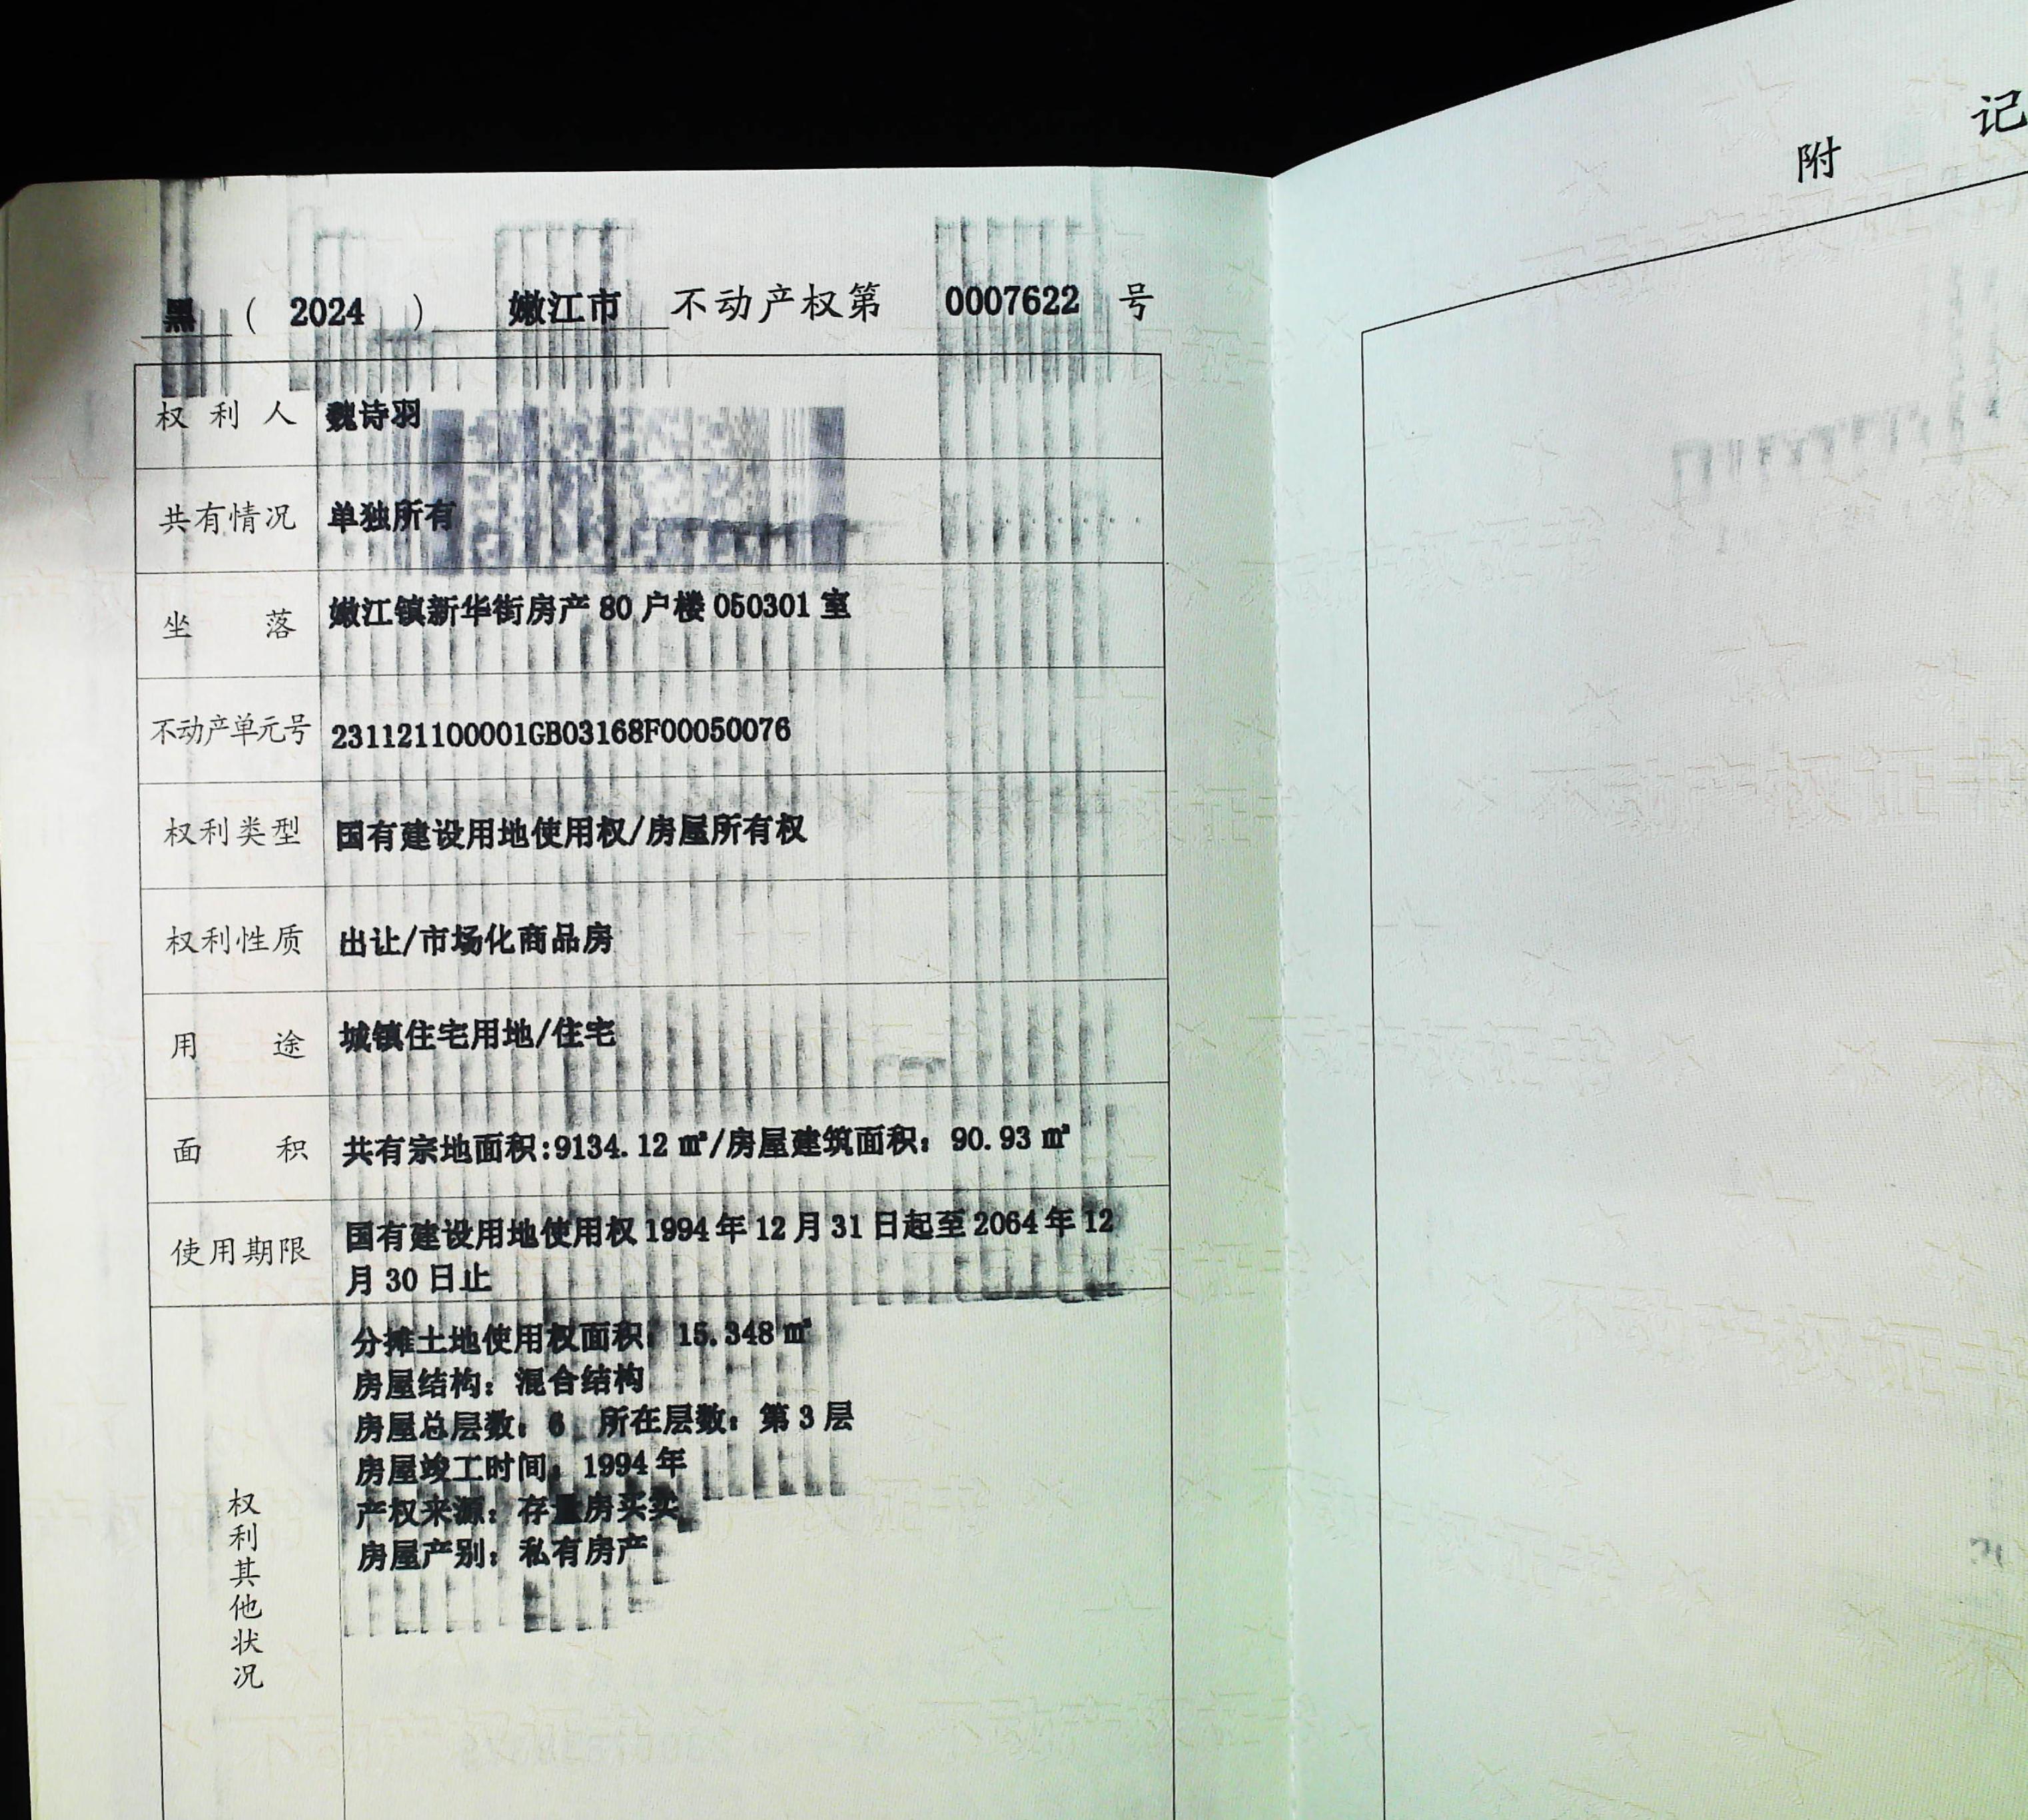 黑（2024）嫩江市不动产权第0007622号
权利人 魏诗羽
共有情况 单独所有
坐落 嫩江镇新华街房产80户楼050301室
不动产单元号 231121100001GB03168F00050076
权利类型 国有建设用地使用权/房屋所有权
权利性质 出让/市场化商品房
用途 城镇住宅用地/住宅
面积 共有宗地面积:9134.12㎡/房屋建筑面积：90.93㎡
使用期限 国有建设用地使用权1994年12月31日起至2064年12
月30日止
权利其他状况
分摊土地使用权面积：15.348㎡
房屋结构：混合结构
房屋总层数：6 所在层数：第3层
房屋竣工时间：1994年
产权来源：存量房买卖
房屋产别：私有房产
附记